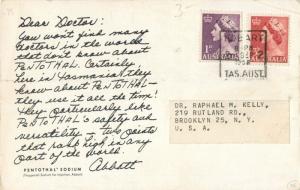 Dear Doctor:
You won't find many
doctors in the world
that don't know about
PENTOTHAL. Certainly,
here in Tasmania they
know about PENTOTHAL—
they use it all the time!
They particularly like
PENTOTHAL's safety and
versatility — two points
that rank high in any
part of the world.
Abbott
PENTOTHAL® SODIUM
(Thiopental Sodium for Injection, Abbott)
HOBART
TAS. AUST.
AUSTRALIA
AUSTRALIA
DR. RAPHAEL M. KELLY,
219 RUTLAND RD.,
BROOKLYN 25, N. Y.
U. S. A.